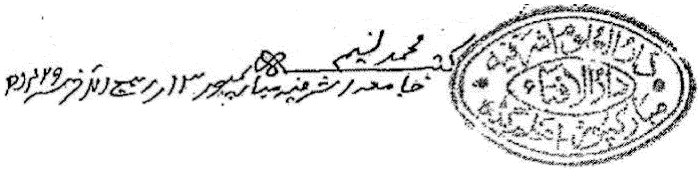 کتبہ محمد نسیم
خادم جامعہ اشرفیہ مبارکپور ۱۳ ربیع الآخر ۱۴۲۹ھ
دار العلوم اشرفیہ
دار الافتاء
مبارکپور اعظم گڑھ